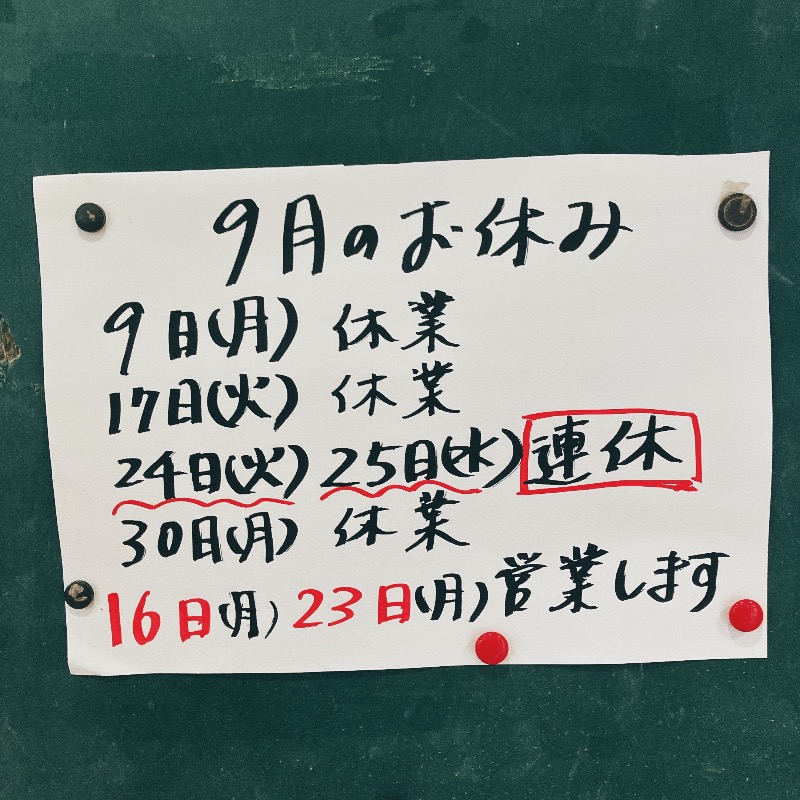 9月のお休み
9日(月) 休業
17日(火) 休業
24日(火) 25日(水) 連休
30日(月) 休業
16日(月) 23日(月) 営業します